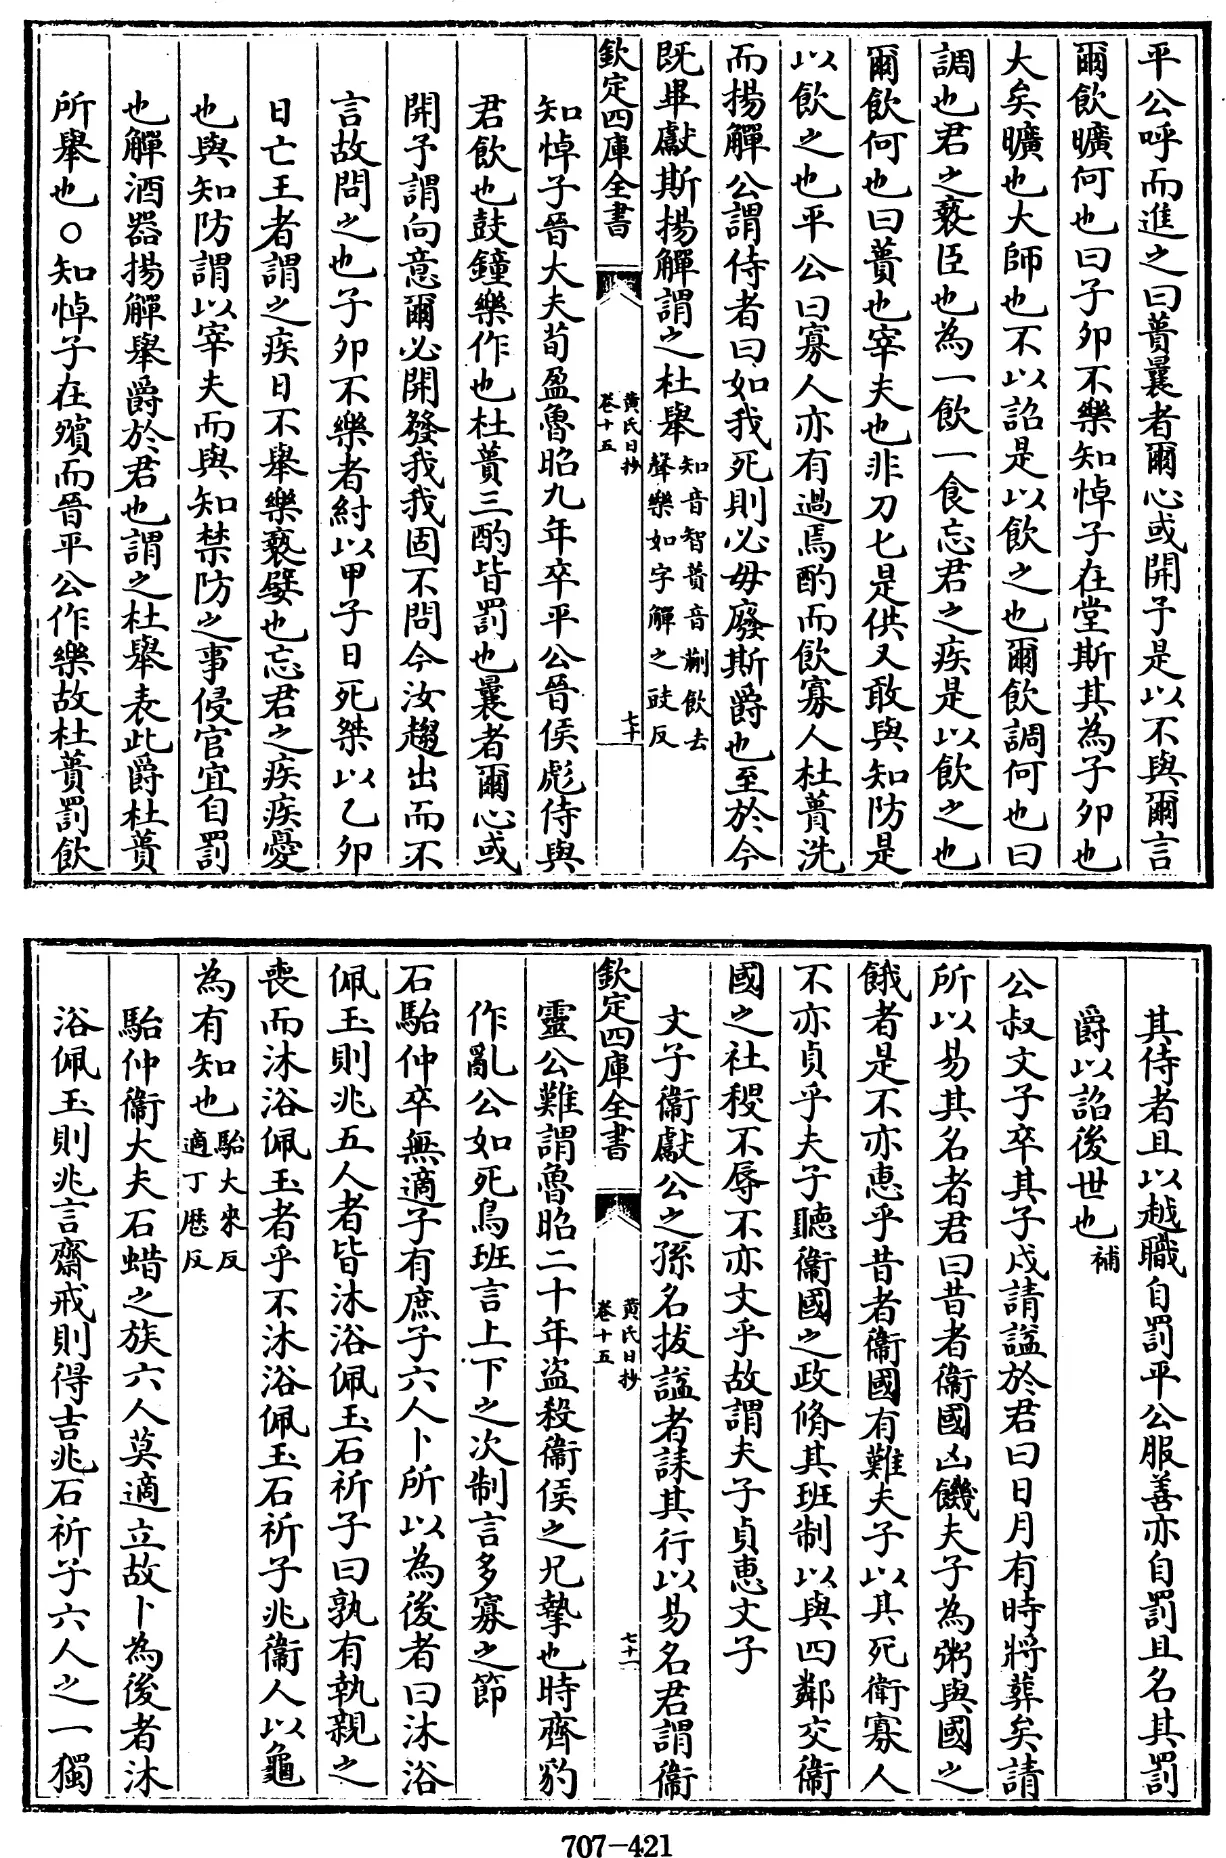 平公呼而進之曰蕢曩者爾心或開予是以不與爾言
爾飲曠何也曰子卯不樂知悼子在堂斯其為子卯也
大矣曠也大師也不以詔是以飲之也爾飲調何也曰
調也君之褻臣也為一飲一食忘君之疾是以飲之也
爾飲何也曰蕢也宰夫也非刀匕是供又敢與知防是
以飲之也平公曰寡人亦有過焉酌而飲寡人杜蕢洗
而揚觶公謂侍者曰如我死則必毋廢斯爵也至於今
既畢獻斯揚觶謂之杜舉知音智蕢音蒯飲去
聲樂如字觶之豉反
欽定四庫全書
黃氏日抄
卷十五
七十
知悼子晉大夫荀盈魯昭九年卒平公晉侯彪侍與
君飲也鼓鐘樂作也杜蕢三酌皆罰也曩者爾心或
開予謂向意爾必開發我我固不問今汝趨出而不
言故問之也子卯不樂者紂以甲子日死桀以乙卯
日亡王者謂之疾日不舉樂褻嬖也忘君之疾疾憂
也與知防謂以宰夫而與知禁防之事侵官宜自罰
也觶酒器揚觶舉爵於君也謂之杜舉表此爵杜蕢
所舉也○知悼子在殯而晉平公作樂故杜蕢罰飲
其侍者且以越職自罰平公服善亦自罰且名其罰
爵以詔後世也補
公叔文子卒其子戍請諡於君曰日月有時將葬矣請
所以易其名者君曰昔者衛國凶饑夫子為粥與國之
餓者是不亦惠乎昔者衛國有難夫子以其死衛寡人
不亦貞乎夫子聽衛國之政脩其班制以與四鄰交衛
國之社稷不辱不亦文乎故謂夫子貞惠文子
文子衛獻公之孫名拔諡者誄其行以易名君謂衛
欽定四庫全書
黃氏日抄
卷十五
七十一
靈公難謂魯昭二十年盜殺衛侯之兄摯也時齊豹
作亂公如死鳥班言上下之次制言多寡之節
石駘仲卒無適子有庶子六人卜所以為後者曰沐浴
佩玉則兆五人者皆沐浴佩玉石祁子曰孰有執親之
喪而沐浴佩玉者乎不沐浴佩玉石祈子兆衛人以龜
為有知也駘大來反
適丁歷反
駘仲衛大夫石蜡之族六人莫適立故卜為後者沐
浴佩玉則兆言齋戒則得吉兆石祈子六人之一獨
707-421